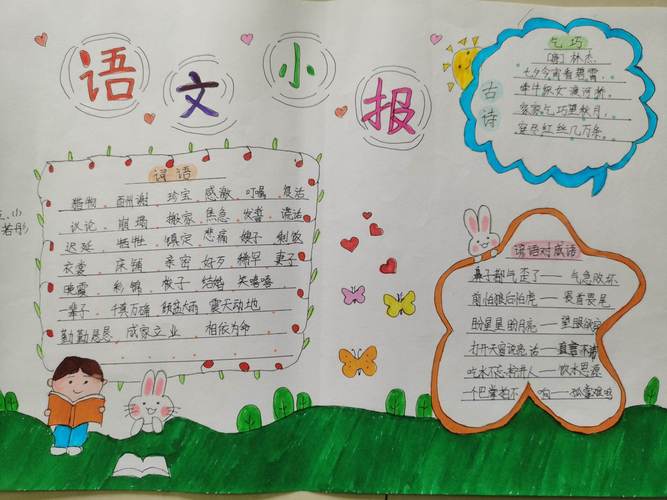 语文小报
词语
猎物 酬谢 珍宝 感激 叮嘱 复活
议论 崩塌 搬家 焦急 发誓 谎话
迟延 牺牲 镇定 悲痛 嫂子 剩饭
衣裳 床铺 亲密 好歹 稀罕 妻子
晚霞 彩锦 梭子 结婚 笑嘻嘻
一辈子 千真万确 倾盆大雨 震天动地
勤勤恳恳 成家立业 相依为命
古诗
乞巧
[唐] 林杰
七夕今宵看碧霄,
牵牛织女渡河桥。
家家乞巧望秋月,
穿尽红丝几万条。
谚语对成语
鼻子都气歪了——气急败坏
前怕狼后怕虎——畏首畏尾
盼星星盼月亮——望眼欲穿
打开天窗说亮话——直言不讳
吃水不忘挖井人——饮水思源
一个巴掌拍不响——孤掌难鸣